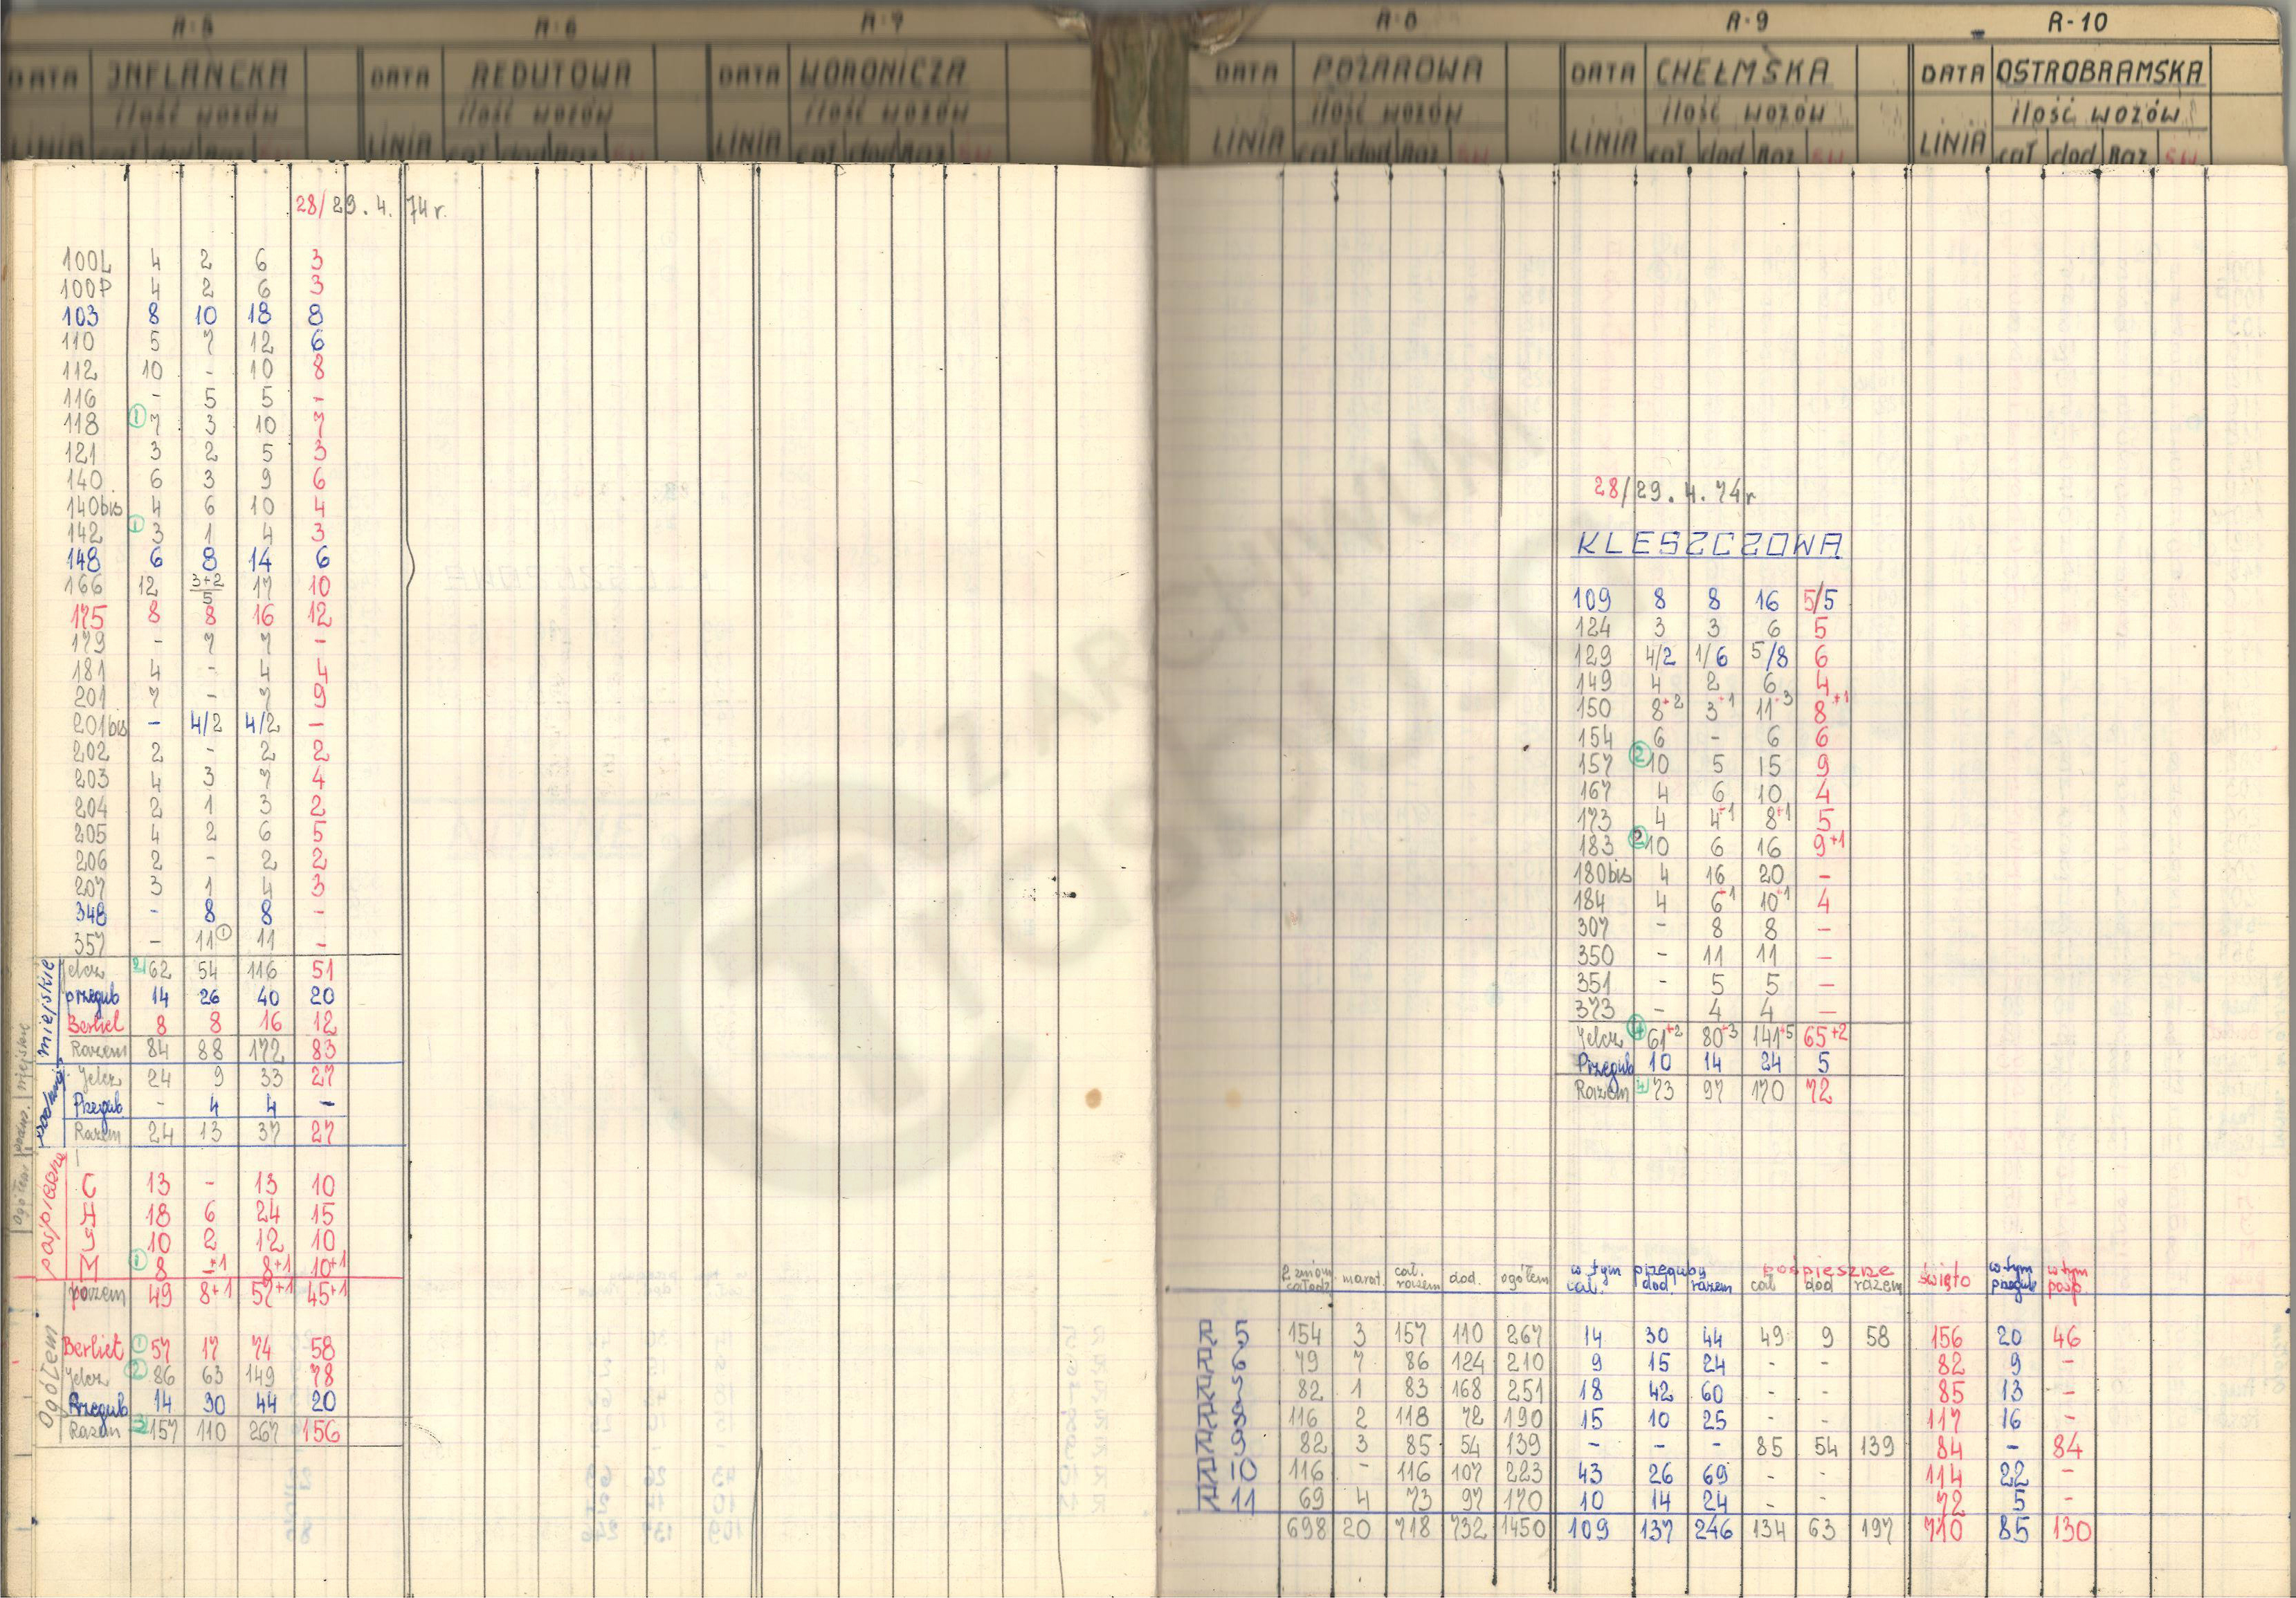 R-5 R-6 R-7 R-8 R-9 R-10
DATA INFLANCKA DATA REDUTOWA DATA WORONICZA DATA POŻAROWA DATA CHEŁMSKA DATA OSTROBRAMSKA
ilość wozów ilość wozów ilość wozów ilość wozów ilość wozów ilość wozów
LINIA cał dod Raz LINIA cał dod Raz LINIA cał dod Raz LINIA cał dod Raz LINIA cał dod Raz LINIA cał dod Raz
28/29.4.74r.
100L 4 2 6 3
100P 4 2 6 3
103 8 10 18 8
110 5 7 12 6
112 10 - 10 8
116 - 5 5 -
118 ① 7 3 10 7
121 3 2 5 3
140 6 3 9 6
140bis 4 6 10 4
142 ① 3 1 4 3
148 6 8 14 6
166 12 3+2/5 17 10
175 8 8 16 12
179 - 7 7 -
181 4 - 4 4
201 7 - 7 9
201bis - 4/2 4/2 -
202 2 - 2 2
203 4 3 7 4
204 2 1 3 2
205 4 2 6 5
206 2 - 2 2
207 3 1 4 3
348 - 8 8 -
357 - 11 ① 11 -
miejskie
Jelcz 2 62 54 116 51
przegub 14 26 40 20
Berliet 8 8 16 12
Razem 84 88 172 83
Jelcz 24 9 33 27
Przegub. - 4 4 -
Razem 24 13 37 27
pośpieszne
C 13 - 13 10
H 18 6 24 15
J 10 2 12 10
M ① 8 -+1 8+1 10+1
razem 49 8+1 57+1 45+1
Ogółem
Berliet ① 57 17 74 58
Jelcz ② 86 63 149 78
Przegub 14 30 44 20
Razem 3 157 110 267 156
ogółem podm. miejskie
28/29.4.74r
KLESZCZOWA
109 8 8 16 5/5
124 3 3 6 5
129 4/2 1/6 5/8 6
149 4 2 6 4
150 8+2 3+1 11+3 8+1
154 6 - 6 6
157 ② 10 5 15 9
167 4 6 10 4
173 4 4+1 8+1 5
183 ② 10 6 16 9+1
180bis 4 16 20 -
184 4 6+1 10+1 4
307 - 8 8 -
350 - 11 11 -
351 - 5 5 -
373 - 4 4 -
Jelcz ④ 61+2 80+3 141+5 65+2
Przegub 10 14 24 5
Razem 4 73 97 170 72
2 zmian całodz. marat. cał. razem dod. ogółem w tym przeguby cał. dod. razem pośpieszne cał dod razem święto w tym przegub w tym posp.
R 5 154 3 157 110 267 14 30 44 49 9 58 156 20 46
R 6 79 7 86 124 210 9 15 24 - - 82 9 -
R 7 82 1 83 168 251 18 42 60 - - 85 13 -
R 8 116 2 118 72 190 15 10 25 - - 117 16 -
R 9 82 3 85 54 139 - - - 85 54 139 84 - 84
R 10 116 - 116 107 223 43 26 69 - - 114 22 -
R 11 69 4 73 97 170 10 14 24 - - 72 5 -
698 20 718 732 1450 109 137 246 134 63 197 710 85 130
Z ARCHIWUM